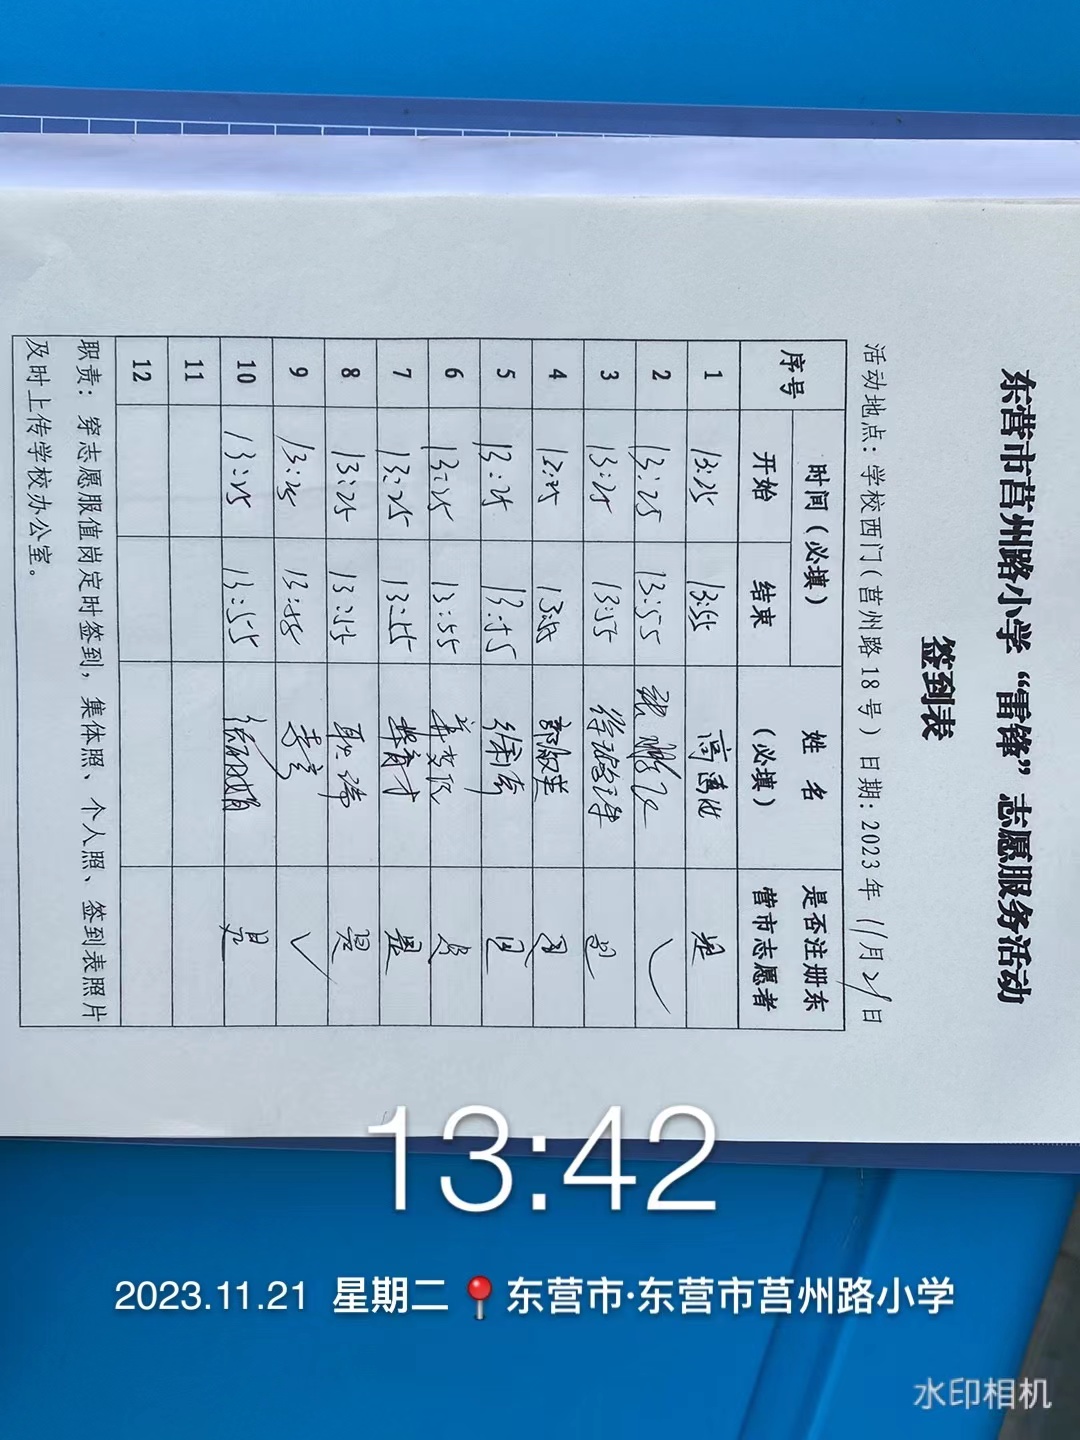 东营市莒州路小学“雷锋”志愿服务活动
签到表
活动地点：学校西门（莒州路18号）日期：2023年11月21日
序号 时间（必填） 姓名（必填） 是否注册东营市志愿者
开始 结束
1 13:25 13:55 是
2 13:25 13:55 ✓
3 13:25 13:55 是
4 13:25 13:55 郭淑莲 是
5 13:25 13:55 是
6 13:25 13:55 是
7 13:25 13:55 是
8 13:25 13:55 是
9 13:25 13:55 李亮 ✓
10 13:25 13:55 是
11
12
职责：穿志愿服值岗定时签到，集体照、个人照、签到表照片
及时上传学校办公室。
13:42
2023.11.21 星期二 东营市·东营市莒州路小学
水印相机